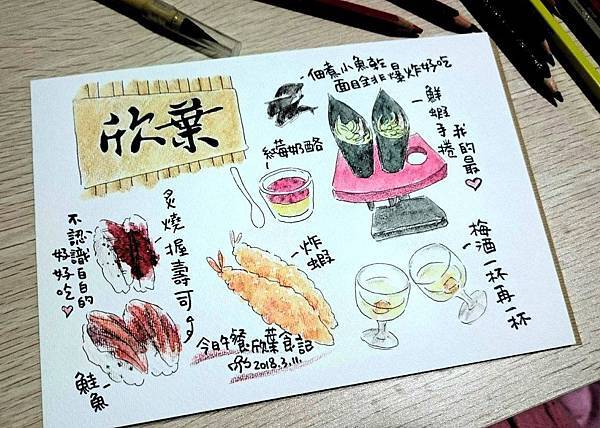 欣葉
佃煮小魚乾
面目全非爆炸好吃
鮮蝦手捲
我的最♡
紅莓奶酪
炙燒握壽司
不認識自白的
好好吃♡
鮭魚
炸蝦
梅酒一杯再一杯
今日午餐欣葉食記
2018.3.11.